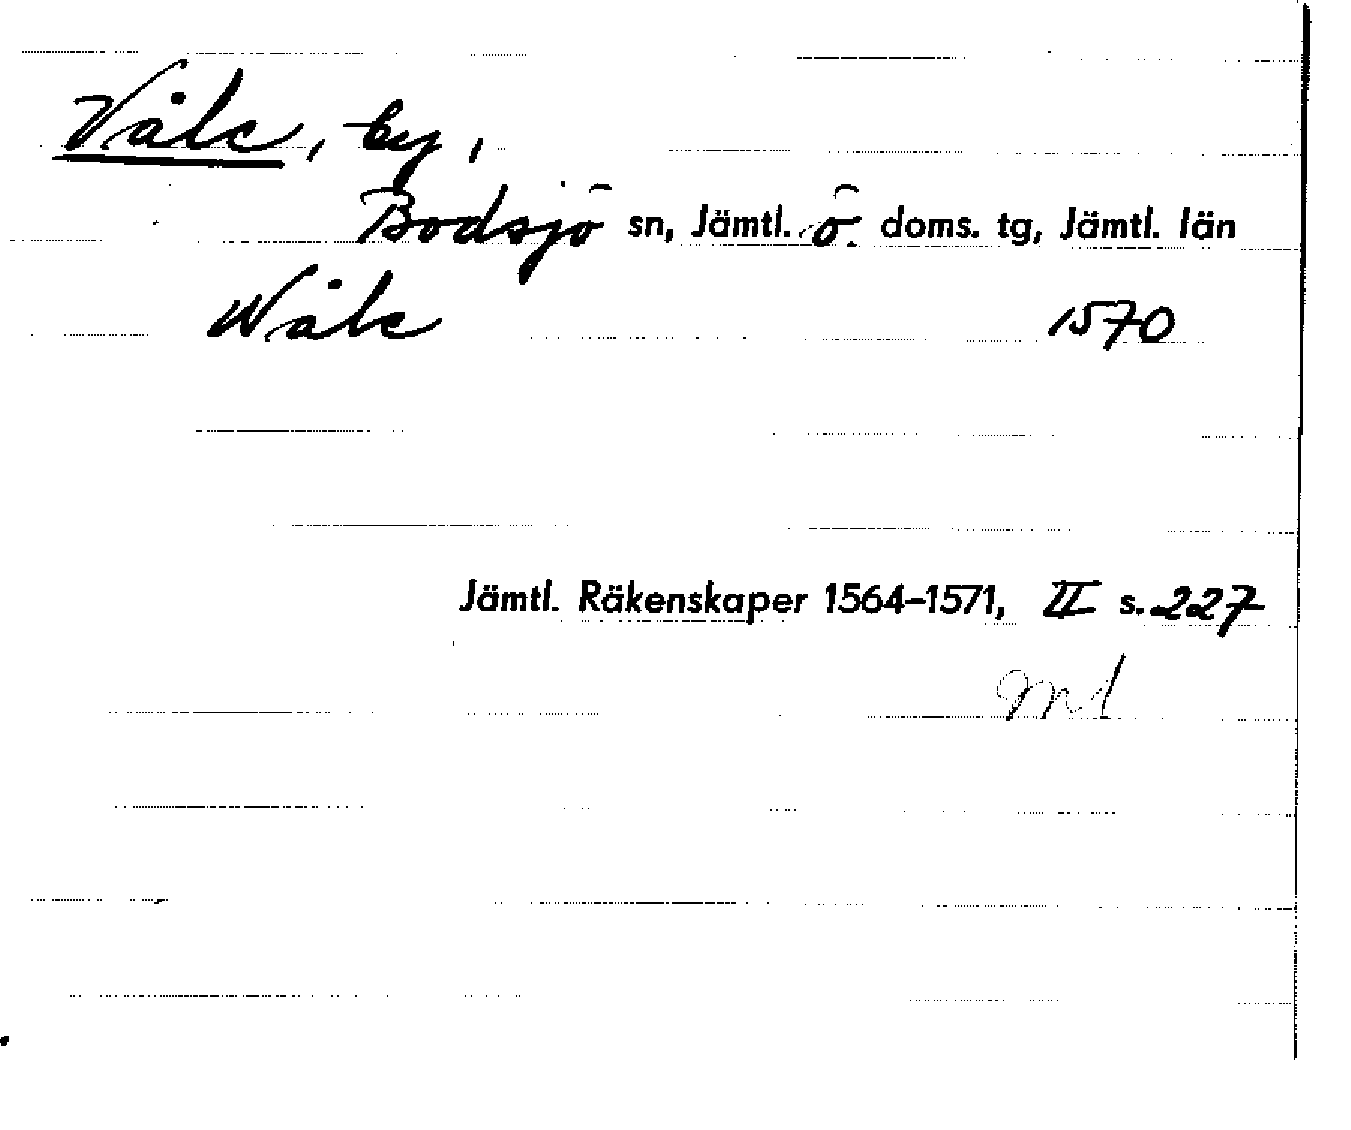 Våle, by,
Bodsjö sn, Jämtl. ö. doms. tg, Jämtl. län
Wåle 1570
Jämtl. Räkenskaper 1564–1571, II s. 227